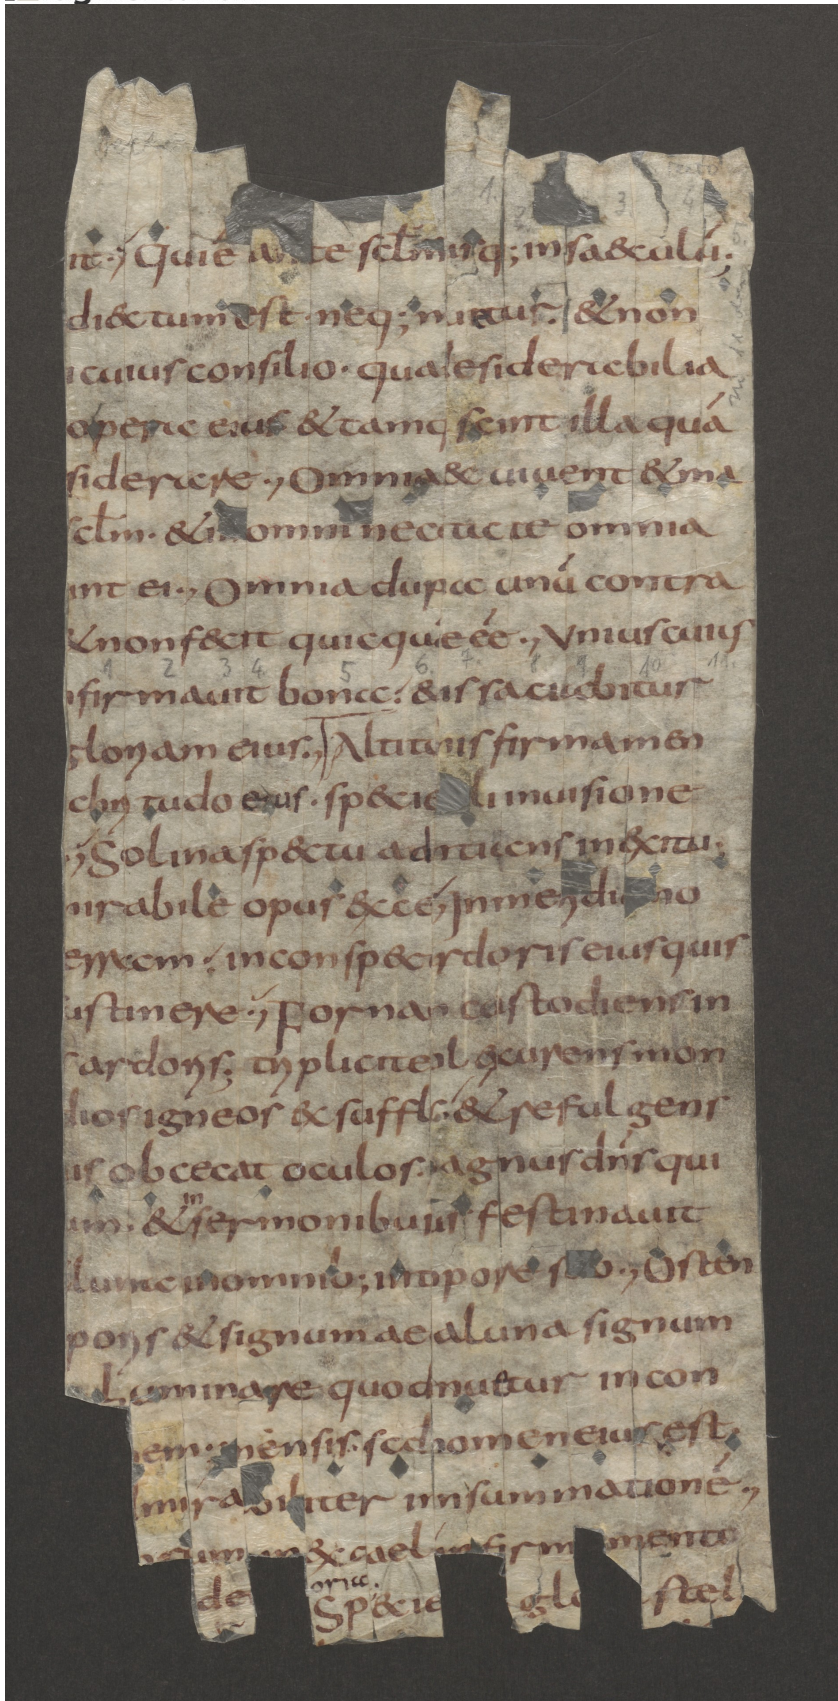 it·, Quiē ante sclm usq; in sa&culū;
di&tum est· neq; minuetur· &non
cuius consilio· qua desiderabilia
opera eius &tamq scintilla quá
siderare·, Omnia&c uiuent &ma
sclm· &in omni necitate omnia
unt ei·, Omnia dupla unū contra
&non fecit quicquiēée·, Vnius cuius
firmauit bona: &is saciabitur
gloriam eius·, Altitus firmamen
chritudo eius· speciē li inuisione
·, Sol in aspectu adnuens in exitu;
mirabile opus &ce, In meridiano
erram· in conspe ardoris eius quis
ustinere·, Fornacem custodiens in
ardoris; tripliciter sol exurens mon
dios igneos & suffl· &refulgens
is obcecat oculos· magnus dn̄s qui
um· & in sermonibus festinauit
luna in omnib; in tepore suo·, Osten
poris &signum ae aluna signum
Luminare quod minuetur incon
em· mensis· sedm nomen eius est
mirabiliter in summationē·,
in &cael firmamento
de orice. Speciē glo stel